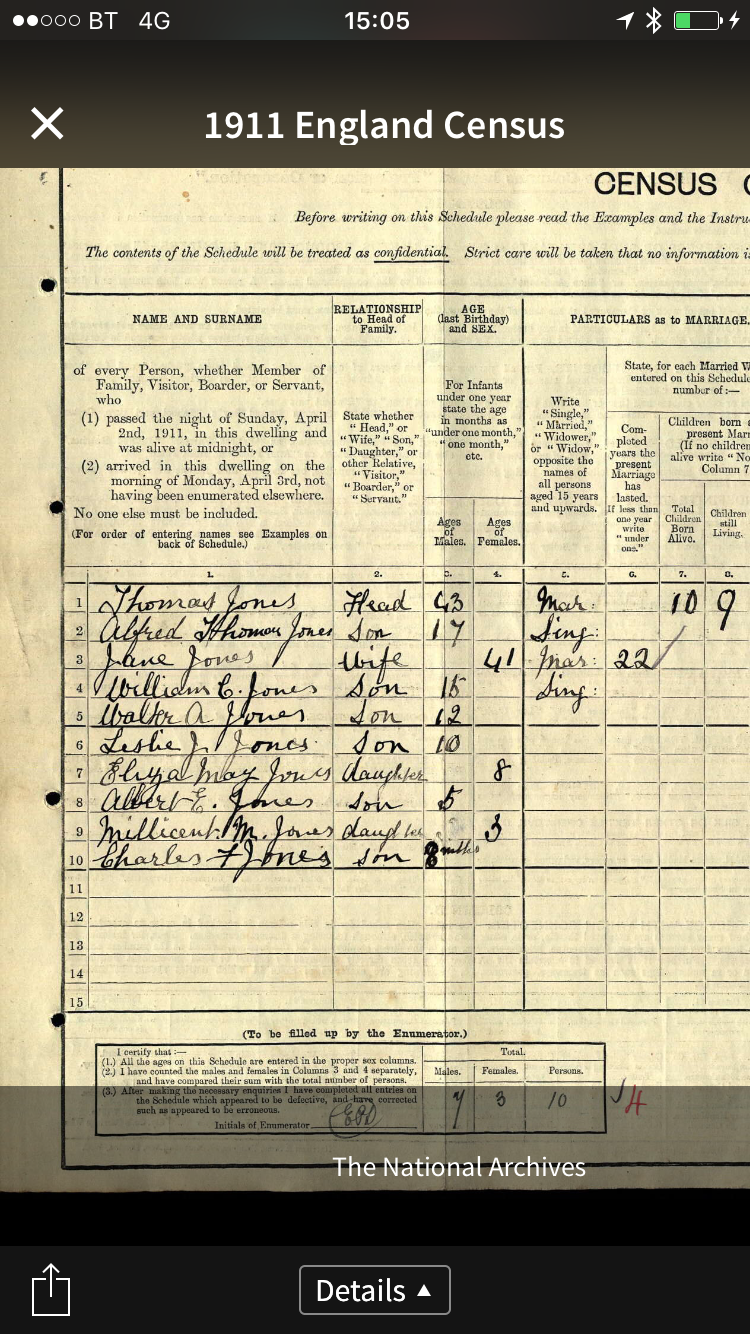 BT 4G 15:05
1911 England Census
CENSUS
Before writing on this Schedule please read the Examples and the
The contents of the Schedule will be treated as confidential. Strict care will be taken that no information
NAME AND SURNAME
of every Person, whether Member of
Family, Visitor, Boarder, or Servant,
who
(1) passed the night of Sunday, April
2nd, 1911, in this dwelling and
was alive at midnight, or
(2) arrived in this dwelling on the
morning of Monday, April 3rd, not
having been enumerated elsewhere.
No one else must be included.
(For order of entering names see Examples on
back of Schedule.)
RELATIONSHIP
to Head of
Family.
State whether
"Head," or
"Wife," "Son,"
"Daughter," or
other Relative,
"Visitor,"
"Boarder," or
"Servant."
AGE
(last Birthday)
and SEX.
For Infants
under one year
state the age
in months as
"under one month,"
"one month,"
etc.
Ages
of
Males.
Ages
of
Females.
PARTICULARS as to MARRIAGE.
Write
"Single,"
"Married,"
"Widower,"
or "Widow,"
opposite the
names of
all persons
aged 15 years
and upwards.
State, for each Married
entered on this
number of:—
Com-
pleted
years the
present
Marriage
has
lasted.
If less than
one year
write
"under
one."
Children born
present
(If no children
alive write
Column 7
Total
Children
Born
Alive.
Children
still
Living.
1. 2. 3. 4. 5. 6. 7. 8.
1 Thomas Jones Head 43 Mar: 10 9
2 Alfred Thomas Jones Son 17 Sing:
3 Jane Jones Wife 41 Mar: 22
4 William C. Jones Son 15 Sing:
5 Walter A Jones Son 12
6 Leslie J. Jones Son 10
7 Eliza May Jones daughter 8
8 Albert E. Jones Son 5
9 Millicent M. Jones daughter 3
10 Charles F Jones son 8 mths
11
12
13
14
15
(To be filled up by the Enumerator.)
I certify that:—
(1.) All the ages on this Schedule are entered in the proper sex columns.
(2.) I have counted the males and females in Columns 3 and 4 separately,
and have compared their sum with the total number of persons.
(3.) After making the necessary enquiries I have completed all entries on
the Schedule which appeared to be defective, and have corrected
such as appeared to be erroneous.
Initials of Enumerator
Total.
Males. Females. Persons.
7 3 10
4
The National Archives
Details